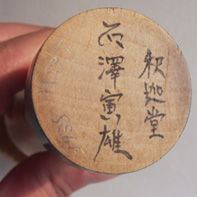 釈迦堂
石澤寅雄